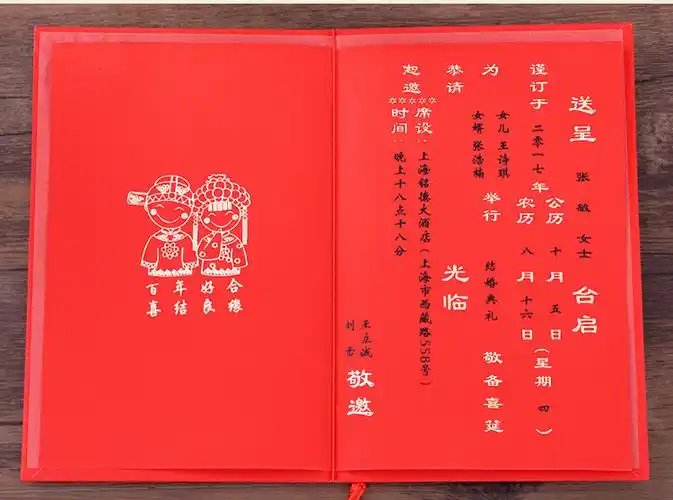 送呈 张敏 女士 台启
谨订于 二零一七年
公历 十月五日（星期四）
农历 八月十六日
为
女儿 王诗琪
女婿 张浩楠
举行 结婚典礼 敬备喜筵
恭请 光临
邀
席设：上海大酒店（上海市西藏路558号）
时间：晚上十八点十八分
敬邀
百年好合
喜结良缘